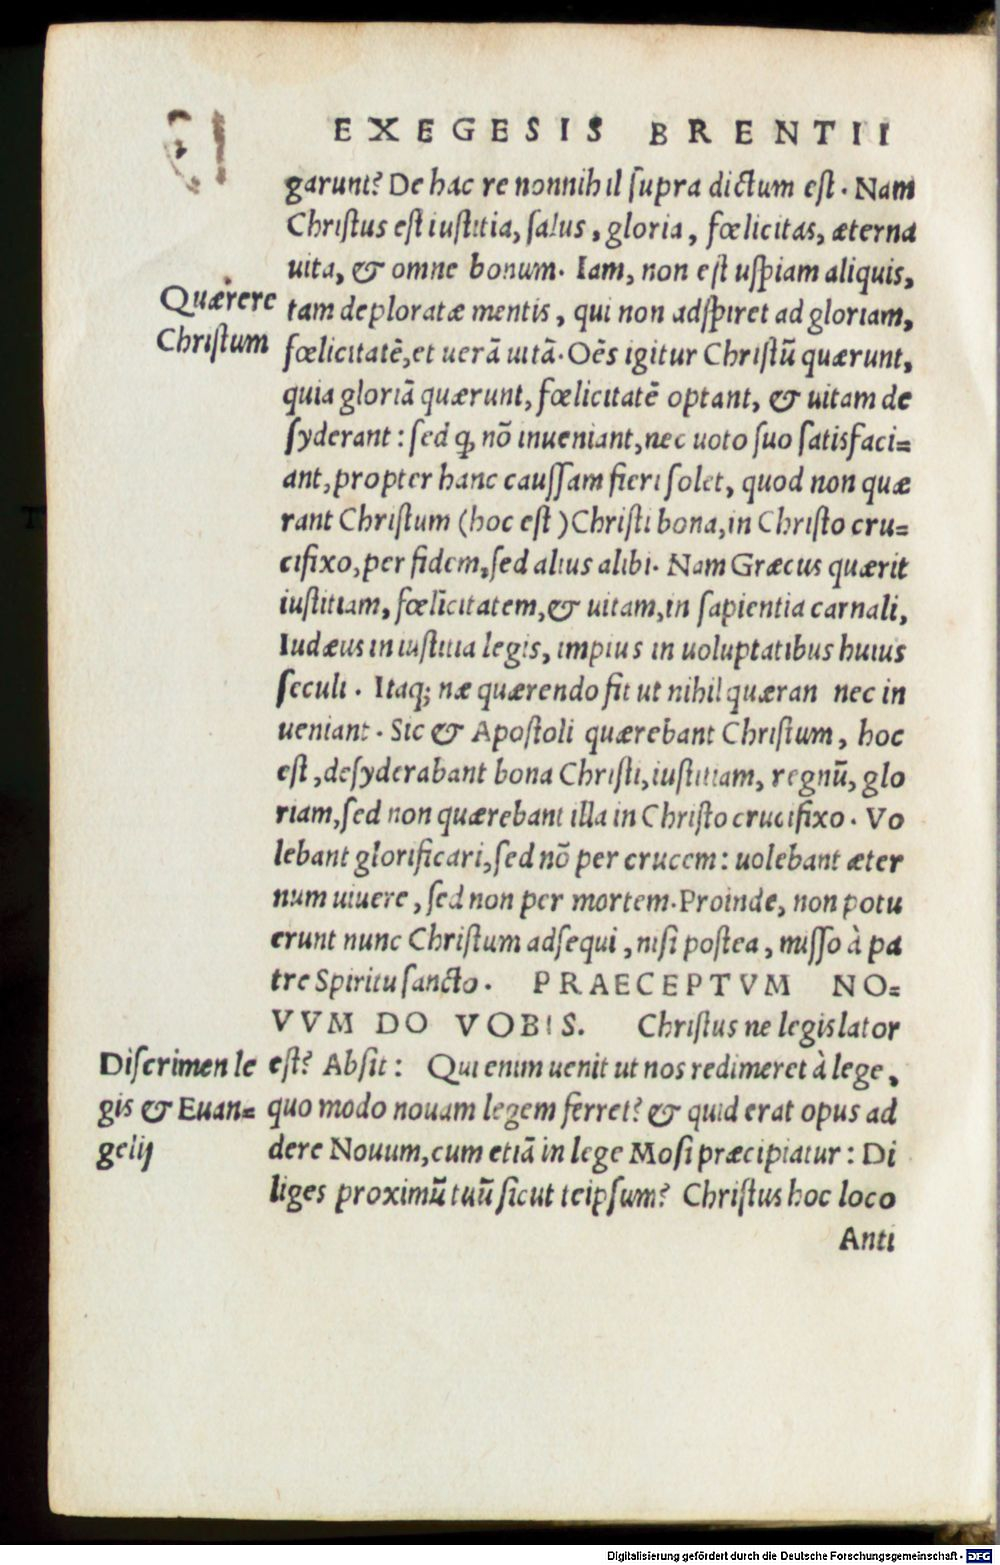 EXEGESIS BRENTII
garunt? De hac re nonnihil ſupra dictum eſt. Nam
Chriſtus eſt iuſtitia, ſalus, gloria, fœlicitas, æterna
uita, & omne bonum. Iam, non eſt uſpiam aliquis,
Quærere
Chriſtum
tam deploratæ mentis, qui non adſpiret ad gloriam,
fœlicitatē, et uerā uitā. Oēs igitur Chriſtū quærunt,
quia gloriā quærunt, fœlicitatē optant, & uitam de
ſyderant: ſed ꝙ nō inueniant, nec uoto ſuo ſatisfaci=
ant, propter hanc cauſſam fieri ſolet, quod non quæ
rant Chriſtum (hoc eſt) Chriſti bona, in Chriſto cru=
cifixo, per fidem, ſed alius alibi. Nam Græcus quærit
iuſtitiam, fœlicitatem, & uitam, in ſapientia carnali,
Iudæus in iuſtitia legis, impius in uoluptatibus huius
ſeculi. Itaqꝫ næ quærendo fit ut nihil quæran nec in
ueniant. Sic & Apoſtoli quærebant Chriſtum, hoc
eſt, deſyderabant bona Chriſti, iuſtitiam, regnū, glo
riam, ſed non quærebant illa in Chriſto crucifixo. Vo
lebant glorificari, ſed nō per crucem: uolebant æter
num uiuere, ſed non per mortem. Proinde, non potu
erunt nunc Chriſtum adſequi, niſi poſtea, miſſo à pa
tre Spiritu ſancto. PRAECEPTVM NO=
VVM DO VOBIS. Chriſtus ne legislator
Diſcrimen le
gis & Euan=
gelij
eſt? Abſit: Qui enim uenit ut nos redimeret à lege,
quo modo nouam legem ferret? & quid erat opus ad
dere Nouum, cum etiā in lege Moſi præcipiatur: Di
liges proximū tuū ſicut teipſum? Chriſtus hoc loco
Anti
Digitalisierung gefördert durch die Deutsche Forschungsgemeinschaft - DFG